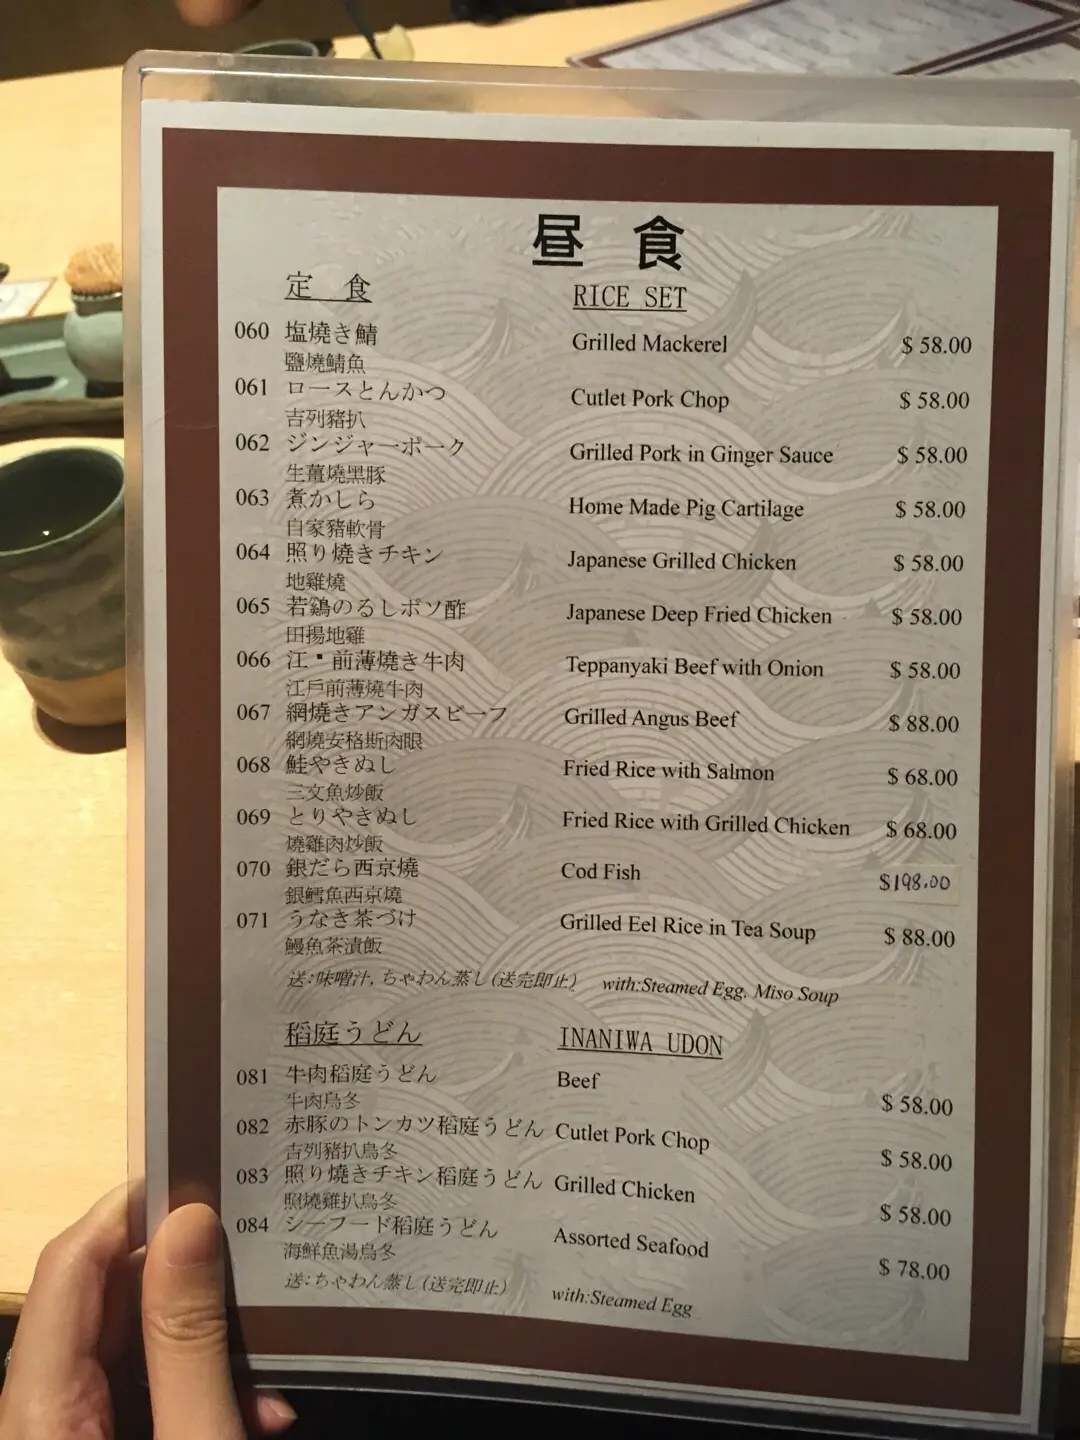 昼 食
定 食 RICE SET
060 塩燒き鯖 Grilled Mackerel $ 58.00
鹽燒鯖魚
061 ロースとんかつ Cutlet Pork Chop $ 58.00
吉列豬扒
062 ジンジャーポーク Grilled Pork in Ginger Sauce $ 58.00
生薑燒黑豚
063 煮かしら Home Made Pig Cartilage $ 58.00
自家豬軟骨
064 照り燒きチキン Japanese Grilled Chicken $ 58.00
地雞燒
065 若鷄のるしポソ酢 Japanese Deep Fried Chicken $ 58.00
田揚地雞
066 江・前薄燒き牛肉 Teppanyaki Beef with Onion $ 58.00
江戶前薄燒牛肉
067 網燒きアンガスビーフ Grilled Angus Beef $ 88.00
網燒安格斯肉眼
068 鮭やきぬし Fried Rice with Salmon $ 68.00
三文魚炒飯
069 とりやきぬし Fried Rice with Grilled Chicken $ 68.00
燒雞肉炒飯
070 銀だら西京燒 Cod Fish $198.00
銀鱈魚西京燒
071 うなき茶づけ Grilled Eel Rice in Tea Soup $ 88.00
鰻魚茶漬飯
送:味噌汁,ちゃわん蒸し(送完即止) with:Steamed Egg, Miso Soup
稻庭うどん INANIWA UDON
081 牛肉稻庭うどん Beef $ 58.00
牛肉烏冬
082 赤豚のトンカツ稻庭うどん Cutlet Pork Chop $ 58.00
吉列豬扒烏冬
083 照り燒きチキン稻庭うどん Grilled Chicken $ 58.00
照燒雞扒烏冬
084 シーフード稻庭うどん Assorted Seafood $ 78.00
海鮮魚湯烏冬
送:ちゃわん蒸し(送完即止) with:Steamed Egg